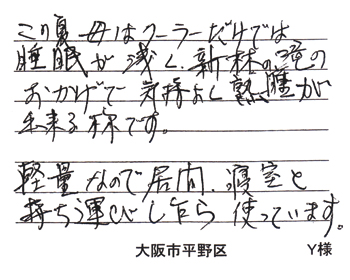 この夏 母はクーラーだけでは
睡眠が浅く、新林の滝の
おかげで 気持よく熟睡が
出来る様です。
軽量なので居間、寝室と
持ち運びしながら 使っています。
大阪市平野区 Y様